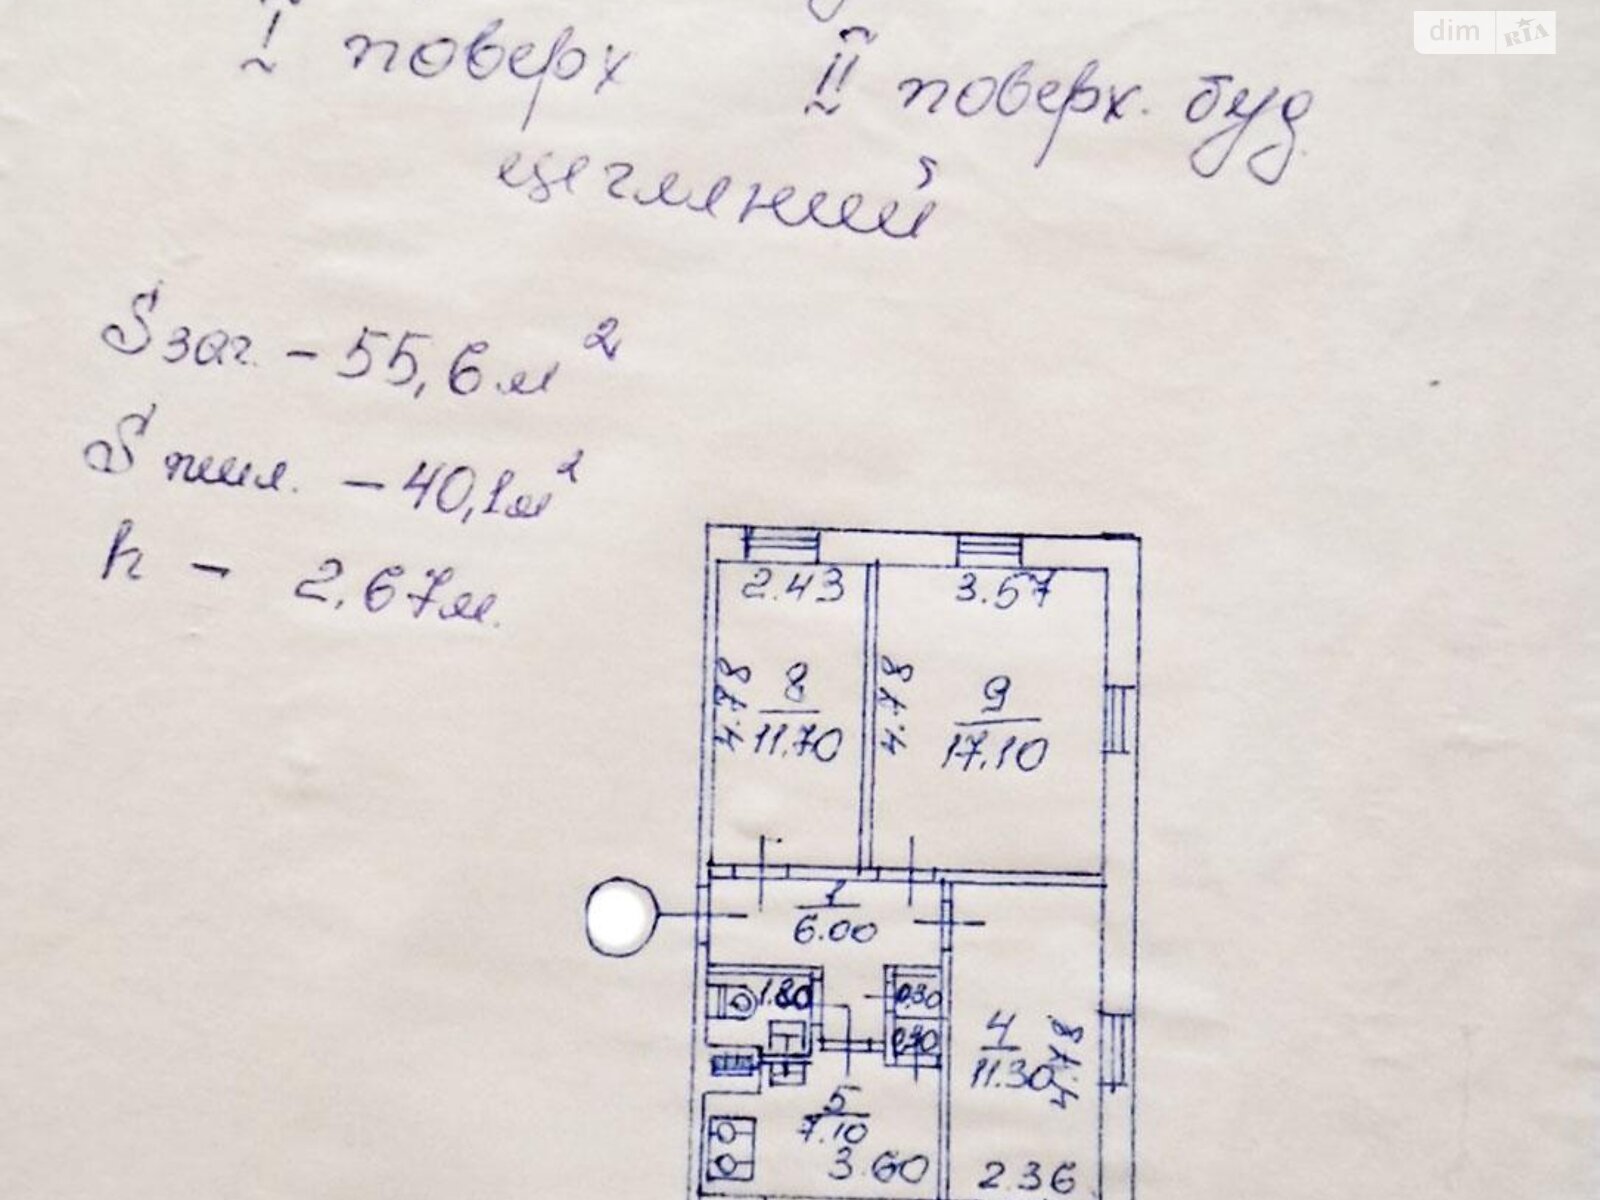 dim RIA
I поверх II поверх. буд.
цегляний
Sзаг. - 55,6 м²
S жил. - 40,1 м²
h - 2,67 м.
2.43 3.57
4.78 8 4.78 9
11.70 17.10
1
6.00
1.80 0.30
0.30
4 4.78
11.30
5
7.10
3.60 2.36